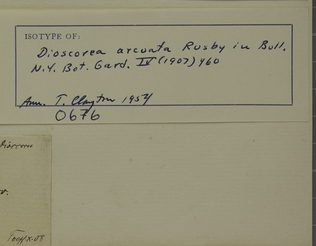 ISOTYPE OF:
Dioscorea arcuata Rusby in Bull.
N.Y. Bot. Gard. IV (1907) 460
Ann. T. Clayton 1954
0676